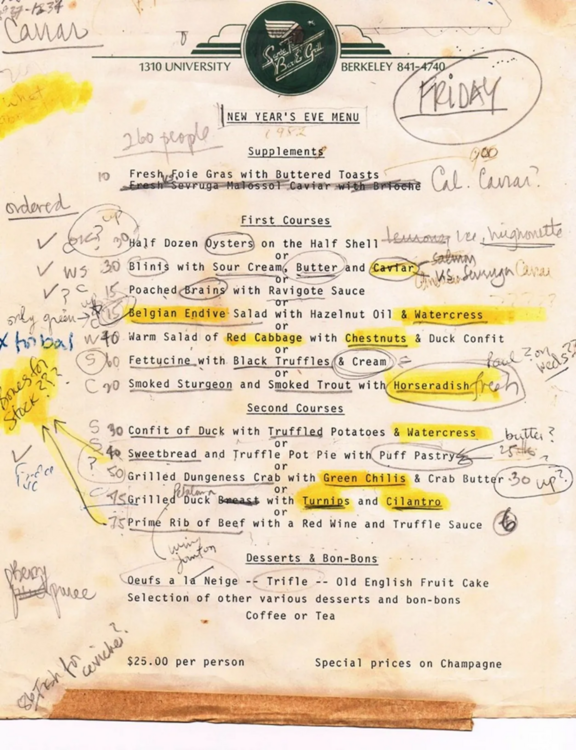 Caviar
Santa Fe
Bar & Grill
1310 UNIVERSITY BERKELEY 841-4740
FRIDAY
what
NEW YEAR'S EVE MENU
1982
260 people
Supplements
10 Fresh Foie Gras with Buttered Toasts
Fresh Sevruga Malossol Caviar with Brioche Cal. Caviar?
ordered
First Courses
up
30 Half Dozen Oysters on the Half Shell Ice, mignonette
or
WS 30 Blinis with Sour Cream, Butter and Caviar salmon
vs. Sevruga Caviar
or
? C 15 Poached Brains with Ravigote Sauce
or
only green
15 Belgian Endive Salad with Hazelnut Oil & Watercress
or
x for bas W 40 Warm Salad of Red Cabbage with Chestnuts & Duck Confit
or
S 60 Fettucine with Black Truffles & Cream
Paul? on Weds??
or
C 20 Smoked Sturgeon and Smoked Trout with Horseradish fresh
Bones for
Stock???
Second Courses
S 30 Confit of Duck with Truffled Potatoes & Watercress
or
butter?
S 40 Sweetbread and Truffle Pot Pie with Puff Pastry 25
or
? 50 Grilled Dungeness Crab with Green Chilis & Crab Butter 30 up?
or
C 45 Grilled Duck Breast with Turnips and Cilantro
or
75 Prime Rib of Beef with a Red Wine and Truffle Sauce 6
Desserts & Bon-Bons
Oeufs a la Neige -- Trifle -- Old English Fruit Cake
Selection of other various desserts and bon-bons
Coffee or Tea
$25.00 per person Special prices on Champagne
86 Fish for
ceviche?